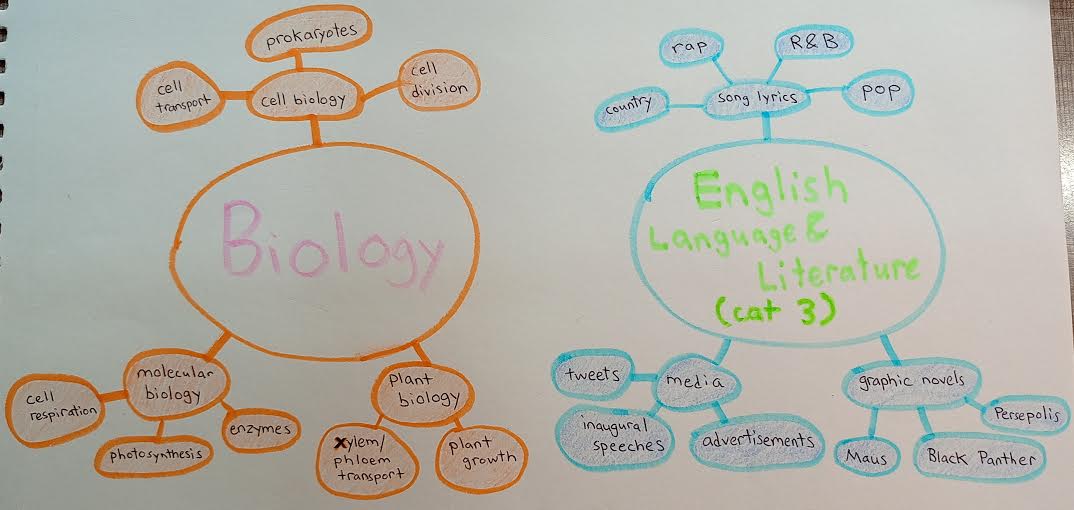 prokaryotes
cell
transport
cell biology
cell
division
Biology
molecular
biology
cell
respiration
photosynthesis
enzymes
Plant
biology
xylem/
phloem
transport
plant
growth
rap
R&B
country
song lyrics
pop
English
Language &
Literature
(cat 3)
tweets
media
inaugural
speeches
advertisements
graphic novels
Persepolis
Maus
Black Panther